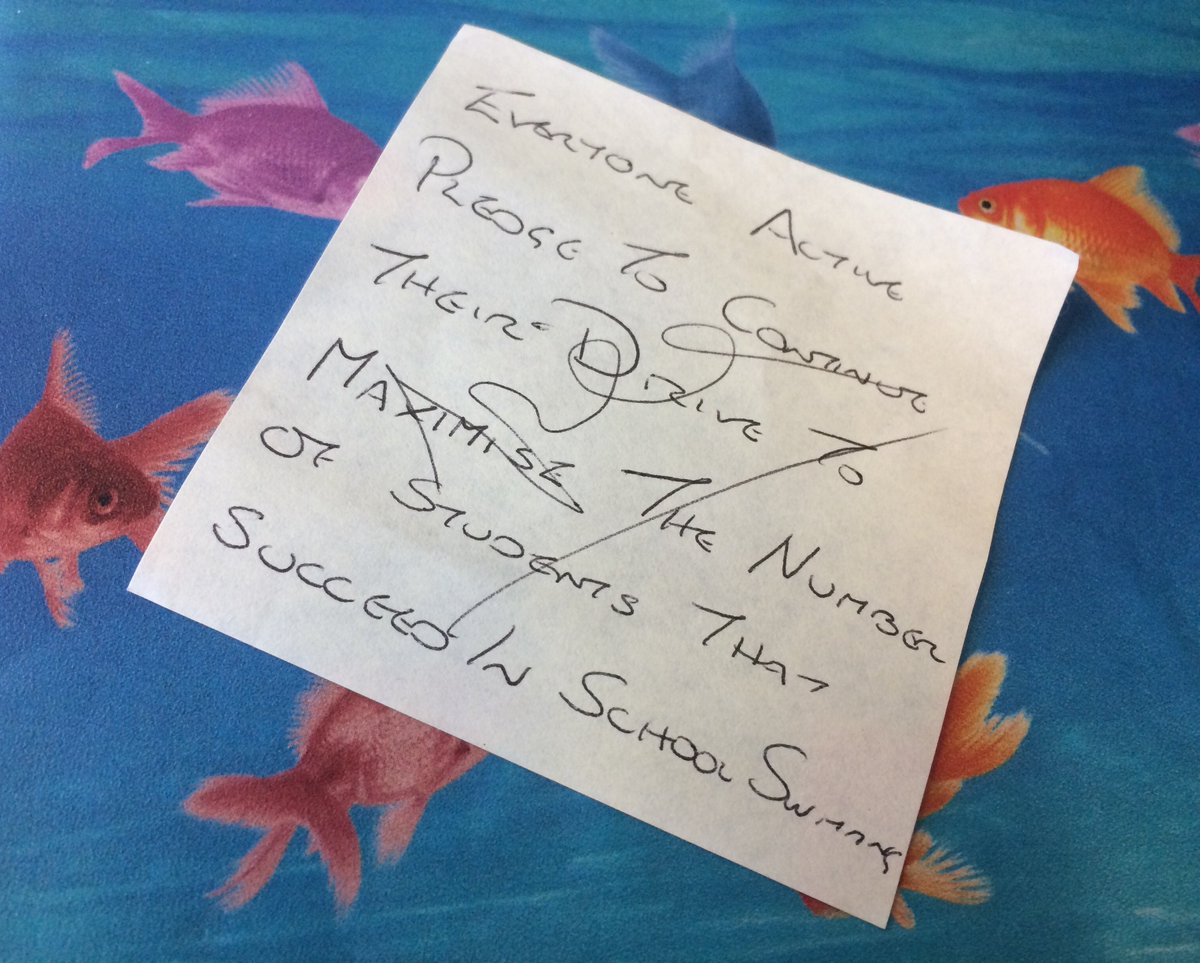 EVERYONE ACTIVE
PLEDGE TO CONTINUE
THEIR DRIVE TO
MAXIMISE THE NUMBER
OF STUDENTS THAT
SUCCEED IN SCHOOL SWIMMING